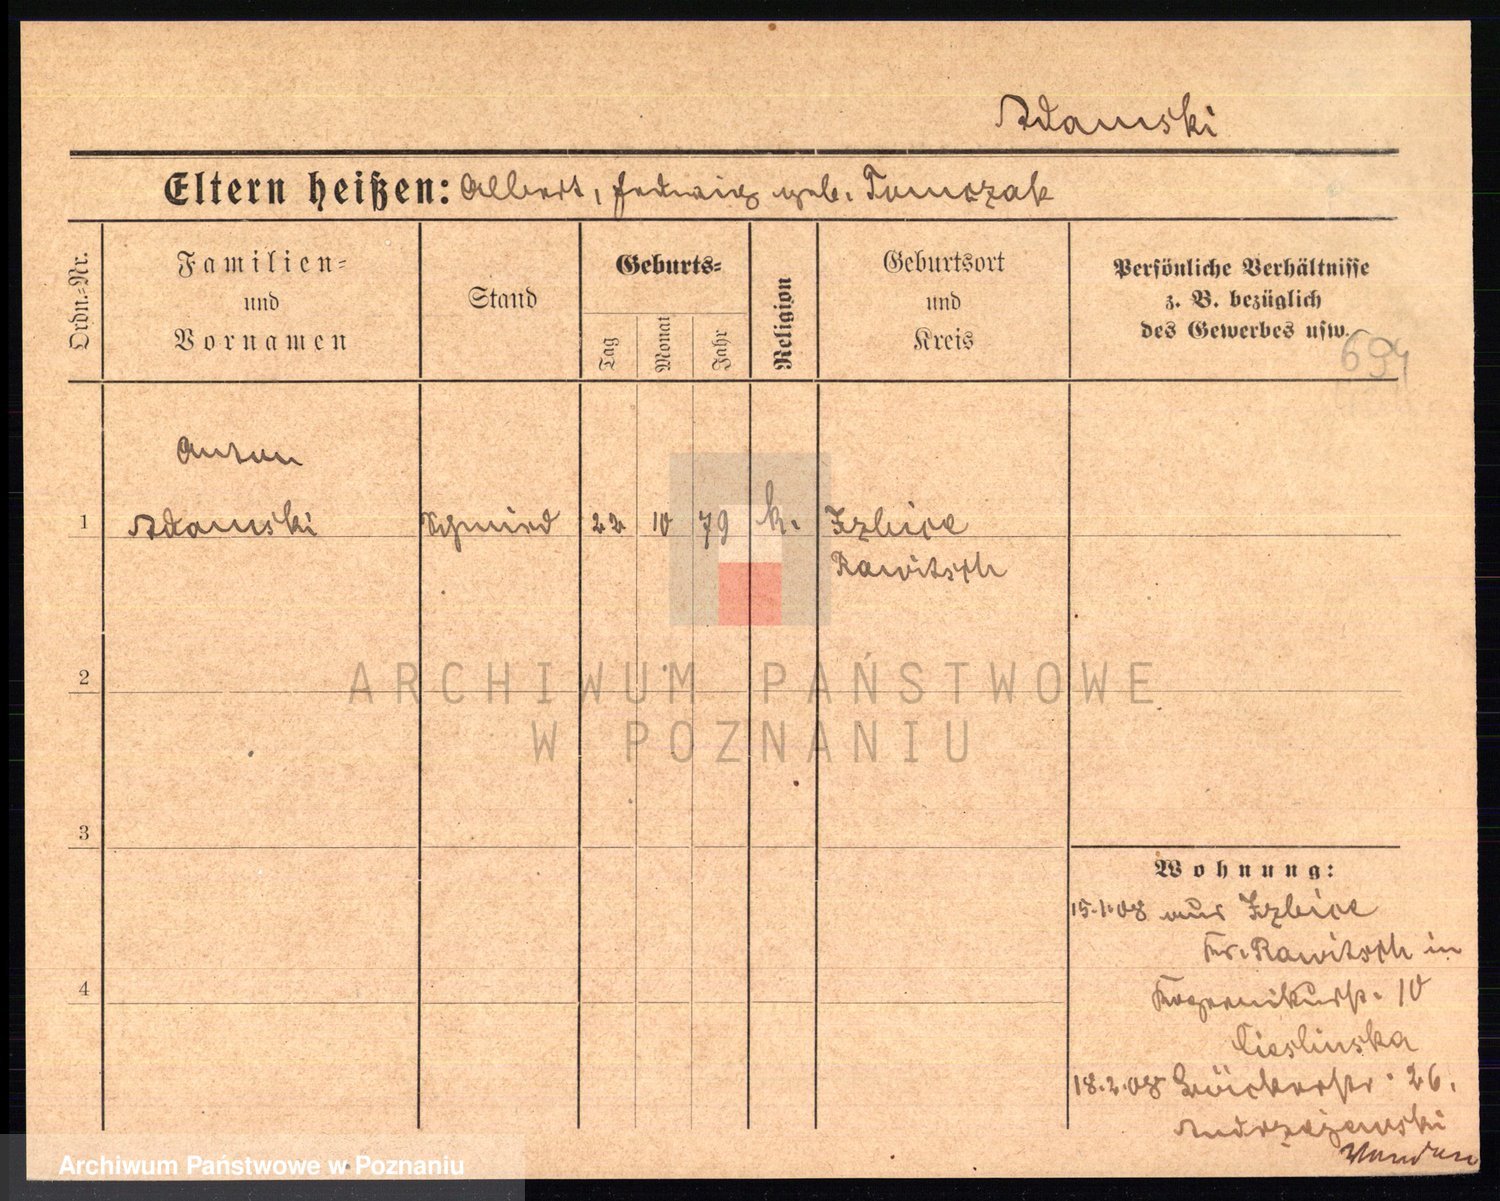 Adamski
Eltern heißen: Albert, Hedwig geb. Tomczak
Ordn.=Nr.
Familien=
und
Vornamen
Stand
Geburts=
Tag
Monat
Jahr
Religion
Geburtsort
und
Kreis
Persönliche Verhältnisse
z. B. bezüglich
des Gewerbes usw.
694
Anton
1 Adamski Schmied 22 10 79 k. Izbice
Rawitsch
ARCHIWUM PAŃSTWOWE
W POZNANIU
2
3
Wohnung:
15.1.08 aus Izbice
Kr. Rawitsch in
4
Kopernikusstr. 10
Cieslinska
18.2.08 26.
Andrzejewski
Archiwum Państwowe w Poznaniu